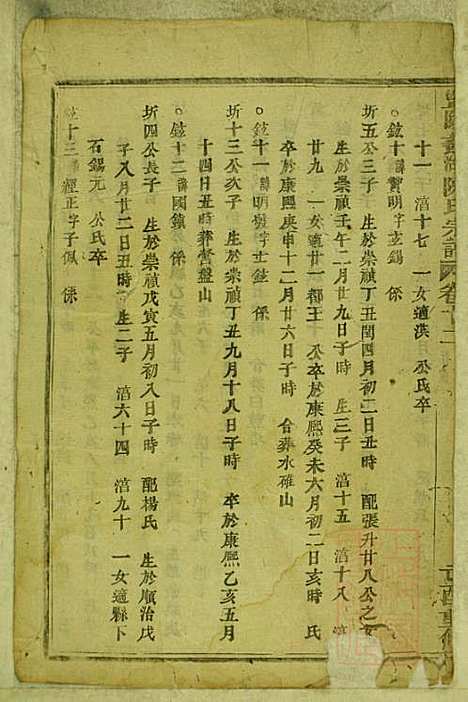 十一 湆十七 一女適漢 公氏卒
○鉉十 諱賢明字立錫 係
圻五公三子 生於崇禎丁丑閏四月初二日丑時 配張升廿八公之女
生於崇禎壬午二月廿九日子時 生三子 湆十五 湆十八 湆
廿九 一女適廿一都王 公卒於康熙癸未六月初二日亥時 氏
卒於康熙庚申十二月廿六日子時 合葬水碓山
○鉉十一 諱明發字立鉉 係
圻十三公次子 生於崇禎丁丑九月十八日子時 卒於康熙乙亥五月
十四日丑時葬營盤山
○鉉十二 諱國鎮 係
圻四公長子 生於崇禎戊寅五月初八日子時 配楊氏 生於順治戊
子八月廿二日丑時 生二子 湆六十四 湆九十 一女適縣下
石錫元 公氏卒
鉉十三 諱經正字子佩 係
氏宗譜 卷廿二
重修